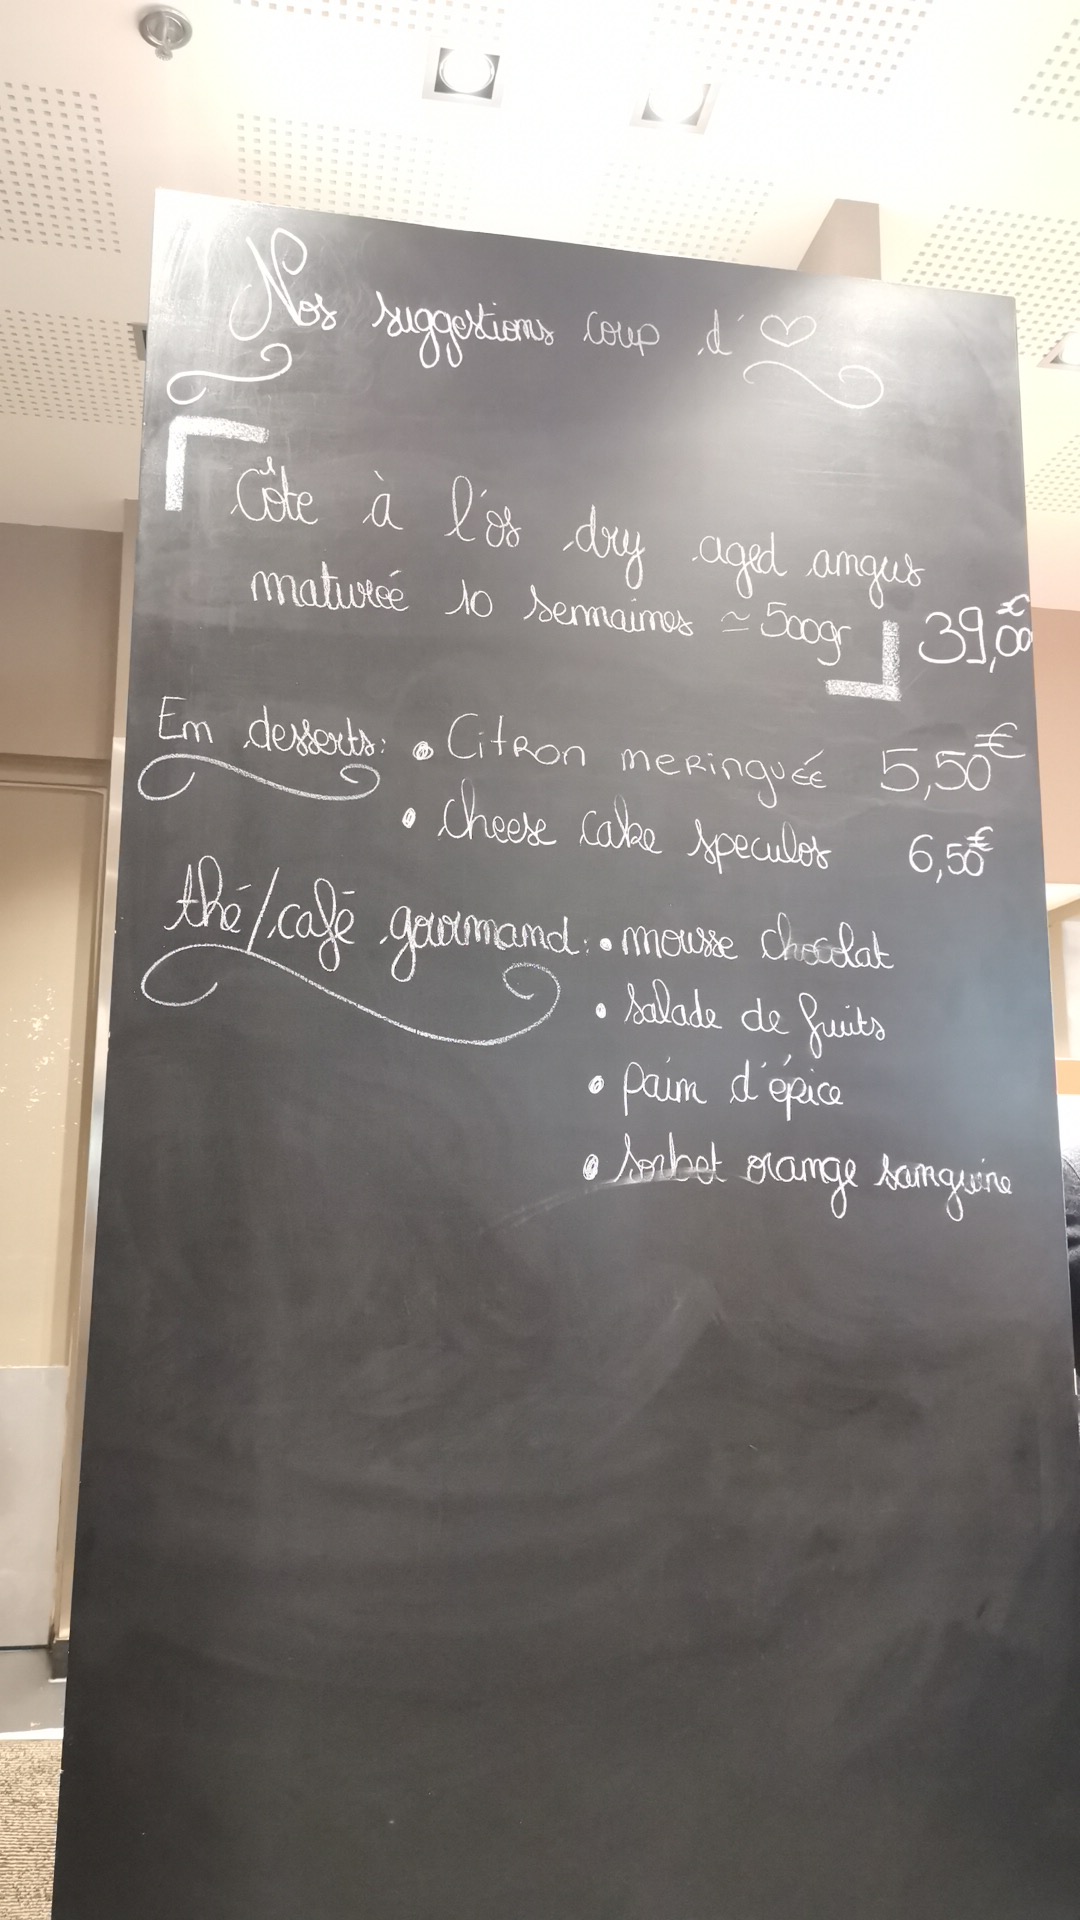 Nos suggestions coup d'♡
Côte à l'os dry aged angus
maturée 10 semaines ≃ 500gr 39,00€
En desserts: • Citron meringuée 5,50€
• Cheese cake speculos 6,50€
thé/café gourmand: • mousse chocolat
• salade de fruits
• pain d'épice
• sorbet orange sanguine